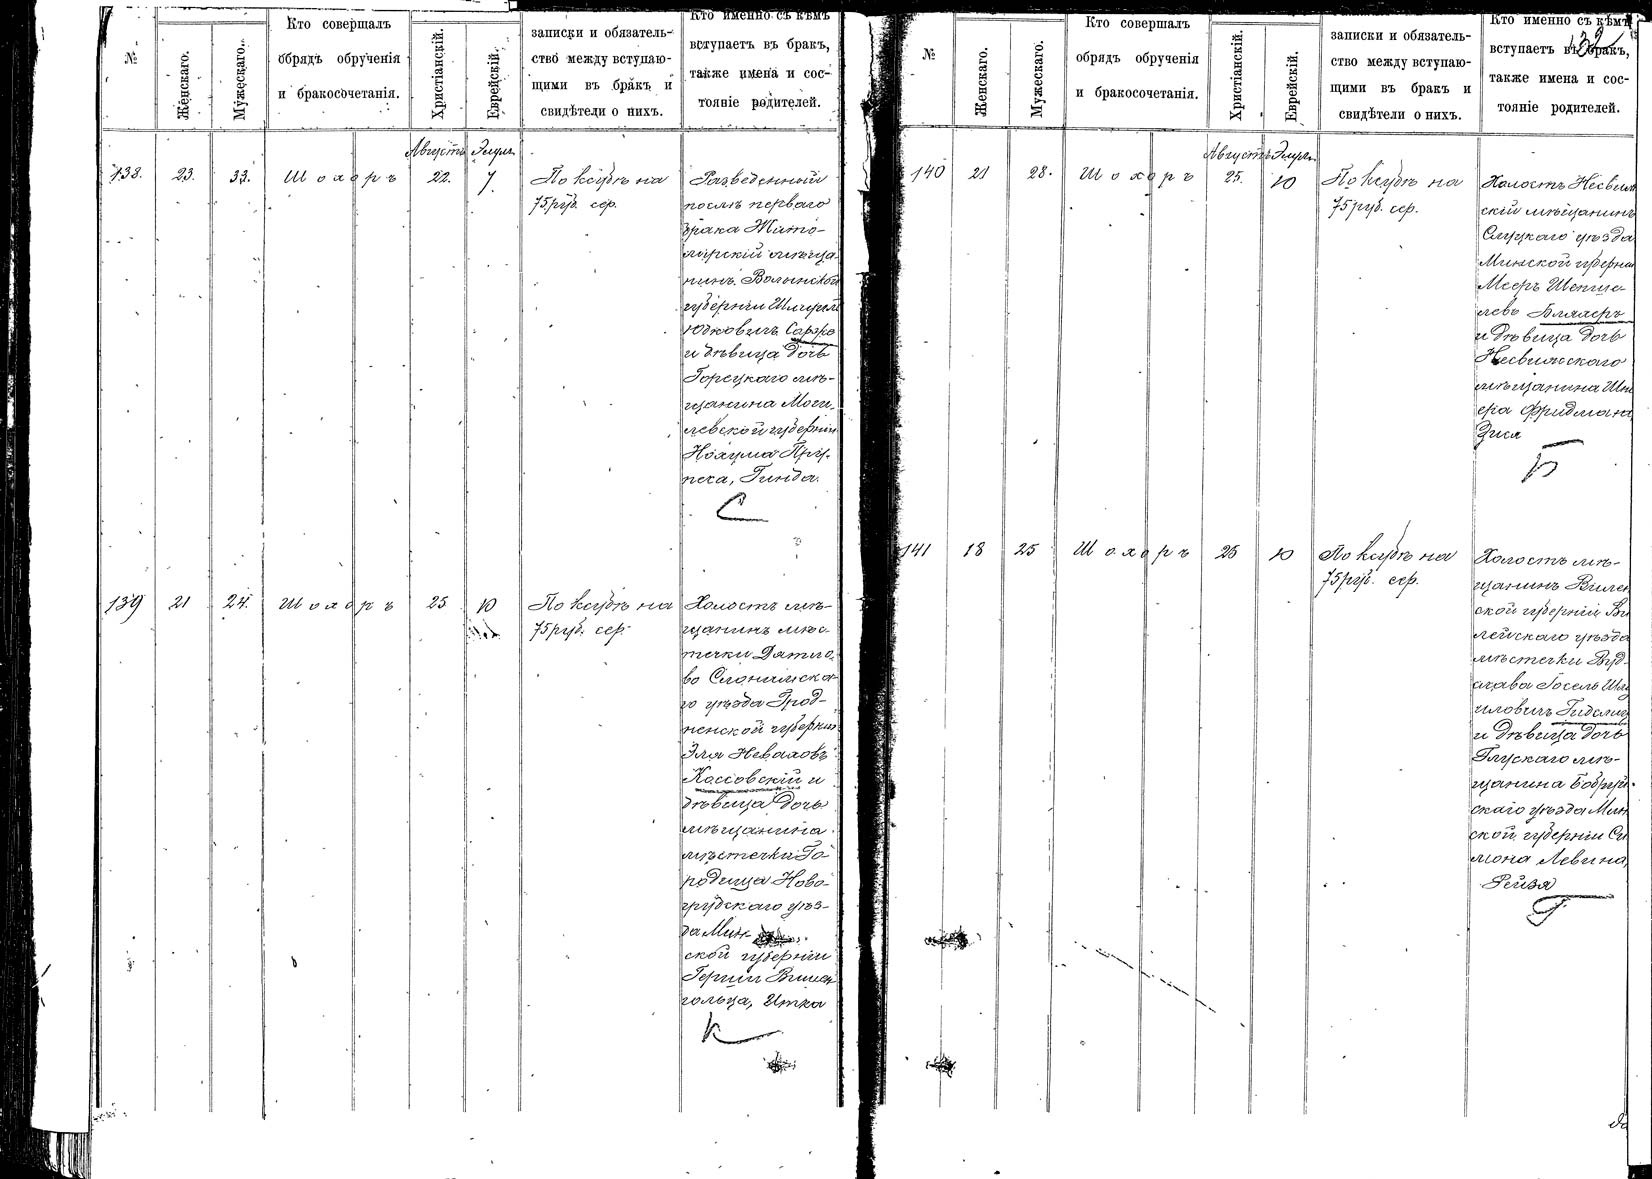 №
Женскаго.
Мужескаго.
Кто совершалъ
обрядъ обрученія
и бракосочетанія.
Христіанскій.
Еврейскій.
записки и обязатель-
ство между вступаю-
щими въ бракъ и
свидѣтели о нихъ.
Кто именно съ кѣмъ
вступаетъ въ бракъ,
также имена и сос-
тояніе родителей.
Августъ Элулъ
138. 23. 33. Шохоръ 22. 7.
По ксубѣ на
75 руб. сер.
Разведенный
послѣ перваго
брака Жито-
мирскій мѣща-
нинъ Волынской
губерніи
Юдковичъ
и дѣвица дочь
Горецкаго мѣ-
щанина Моги-
левской губерніи
Нохума Пру-
пса, Гинда.
С
139 21 24. Шохоръ 25 10
По ксубѣ на
75 руб. сер.
Холостъ мѣ-
щанинъ мѣс-
течки Дятло-
во Слонимска-
го уѣзда Грод-
ненской губерніи
Эля
Коссовскій и
дѣвица дочь
мѣщанина
мѣстечки Го-
родища Ново-
грудскаго уѣз-
да Мин-
ской губерніи
гольца, Итка
К
№
Женскаго.
Мужескаго.
Кто совершалъ
обрядъ обрученія
и бракосочетанія.
Христіанскій.
Еврейскій.
записки и обязатель-
ство между вступаю-
щими въ бракъ и
свидѣтели о нихъ.
Кто именно съ кѣмъ
вступаетъ въ бракъ,
также имена и сос-
тояніе родителей.
132
Августъ Элулъ
140 21 28. Шохоръ 25. 10
По ксубѣ на
75 руб. сер.
Холостъ Несвиж
скій мѣщанинъ
Слуцкаго уѣзда
Минской губерніи
Мееръ Шепше-
левъ Бляхеръ
и дѣвица дочь
Несвижскаго
мѣщанина
Фридмана
Зися
Б
141 18 25 Шохоръ 25 10
По ксубѣ на
75 руб. сер.
Холостъ мѣ-
щанинъ Вилен
ской губерніи Ви
лейскаго уѣзда
мѣстечки
Іосель
и дѣвица дочь
Глускаго мѣ-
щанина Бобруй-
скаго уѣзда Мин
ской губерніи Си
мона Левина,
Рейзя
Г